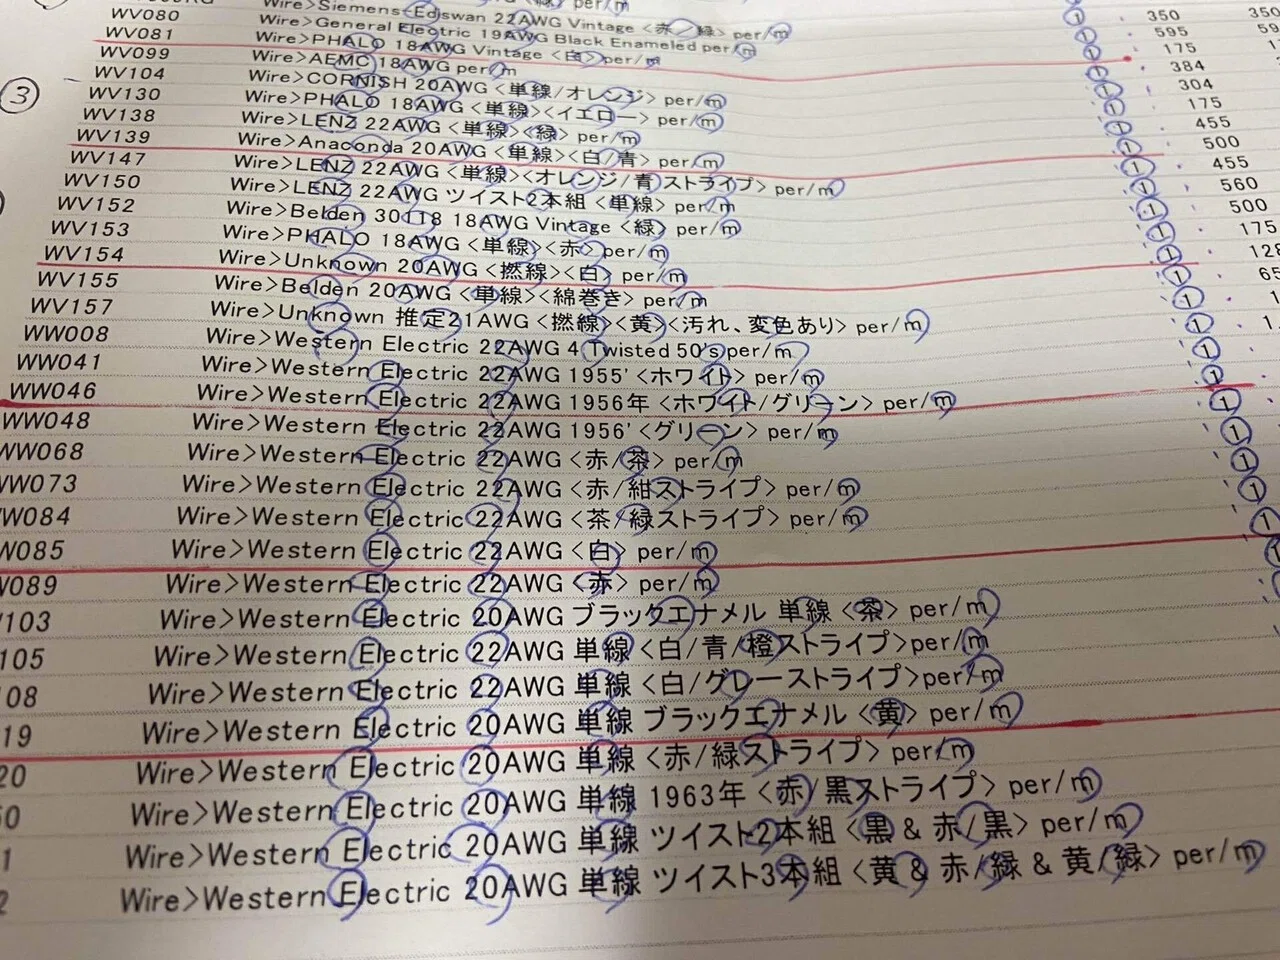 per/m
WV080 Wire>Siemens Ediswan 22AWG Vintage <赤/緑> per/m ① 350 350
WV081 Wire>General Electric 19AWG Black Enameled per/m ① 595
WV099 Wire>PHALO 18AWG Vintage <白> per/m ① 175
WV104 Wire>AEMC 18AWG per/m ① 384
③ WV130 Wire>CORNISH 20AWG <単線/オレンジ> per/m ① 304
WV138 Wire>PHALO 18AWG <単線><イエロー> per/m ① 175
WV139 Wire>LENZ 22AWG <単線><緑> per/m ① 455
WV147 Wire>Anaconda 20AWG <単線><白/青> per/m ① 500
WV150 Wire>LENZ 22AWG <単線><オレンジ/青ストライプ> per/m ① 455
WV152 Wire>LENZ 22AWG ツイスト2本組 <単線> per/m ① 560
WV153 Wire>Belden 30118 18AWG Vintage <緑> per/m ① 500
WV154 Wire>PHALO 18AWG <単線><赤> per/m ① 175
WV155 Wire>Unknown 20AWG <撚線><白> per/m ① 128
WV157 Wire>Belden 20AWG <単線><綿巻き> per/m ① 65
WW008 Wire>Unknown 推定21AWG <撚線><黄><汚れ、変色あり> per/m ①
WW041 Wire>Western Electric 22AWG 4 Twisted 50's per/m ①
WW046 Wire>Western Electric 22AWG 1955' <ホワイト> per/m ①
WW048 Wire>Western Electric 22AWG 1956年 <ホワイト/グリーン> per/m ①
WW068 Wire>Western Electric 22AWG 1956' <グリーン> per/m ①
WW073 Wire>Western Electric 22AWG <赤/茶> per/m ①
W084 Wire>Western Electric 22AWG <赤/紺ストライプ> per/m ①
W085 Wire>Western Electric 22AWG <茶/緑ストライプ> per/m ①
089 Wire>Western Electric 22AWG <白> per/m ①
103 Wire>Western Electric 22AWG <赤> per/m
105 Wire>Western Electric 20AWG ブラックエナメル 単線 <茶> per/m
08 Wire>Western Electric 22AWG 単線 <白/青/橙ストライプ>per/m
19 Wire>Western Electric 22AWG 単線 <白/グレーストライプ>per/m
20 Wire>Western Electric 20AWG 単線 ブラックエナメル <黄> per/m
0 Wire>Western Electric 20AWG 単線 <赤/緑ストライプ> per/m
1 Wire>Western Electric 20AWG 単線 1963年 <赤/黒ストライプ> per/m
2 Wire>Western Electric 20AWG 単線 ツイスト2本組 <黒 & 赤/黒> per/m
Wire>Western Electric 20AWG 単線 ツイスト3本組 <黄 & 赤/緑 & 黄/緑> per/m